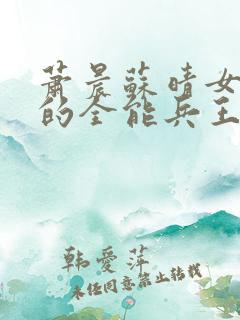 萧晨蘇晴女
的全能兵王
韩愛萍
未经同意禁止转载